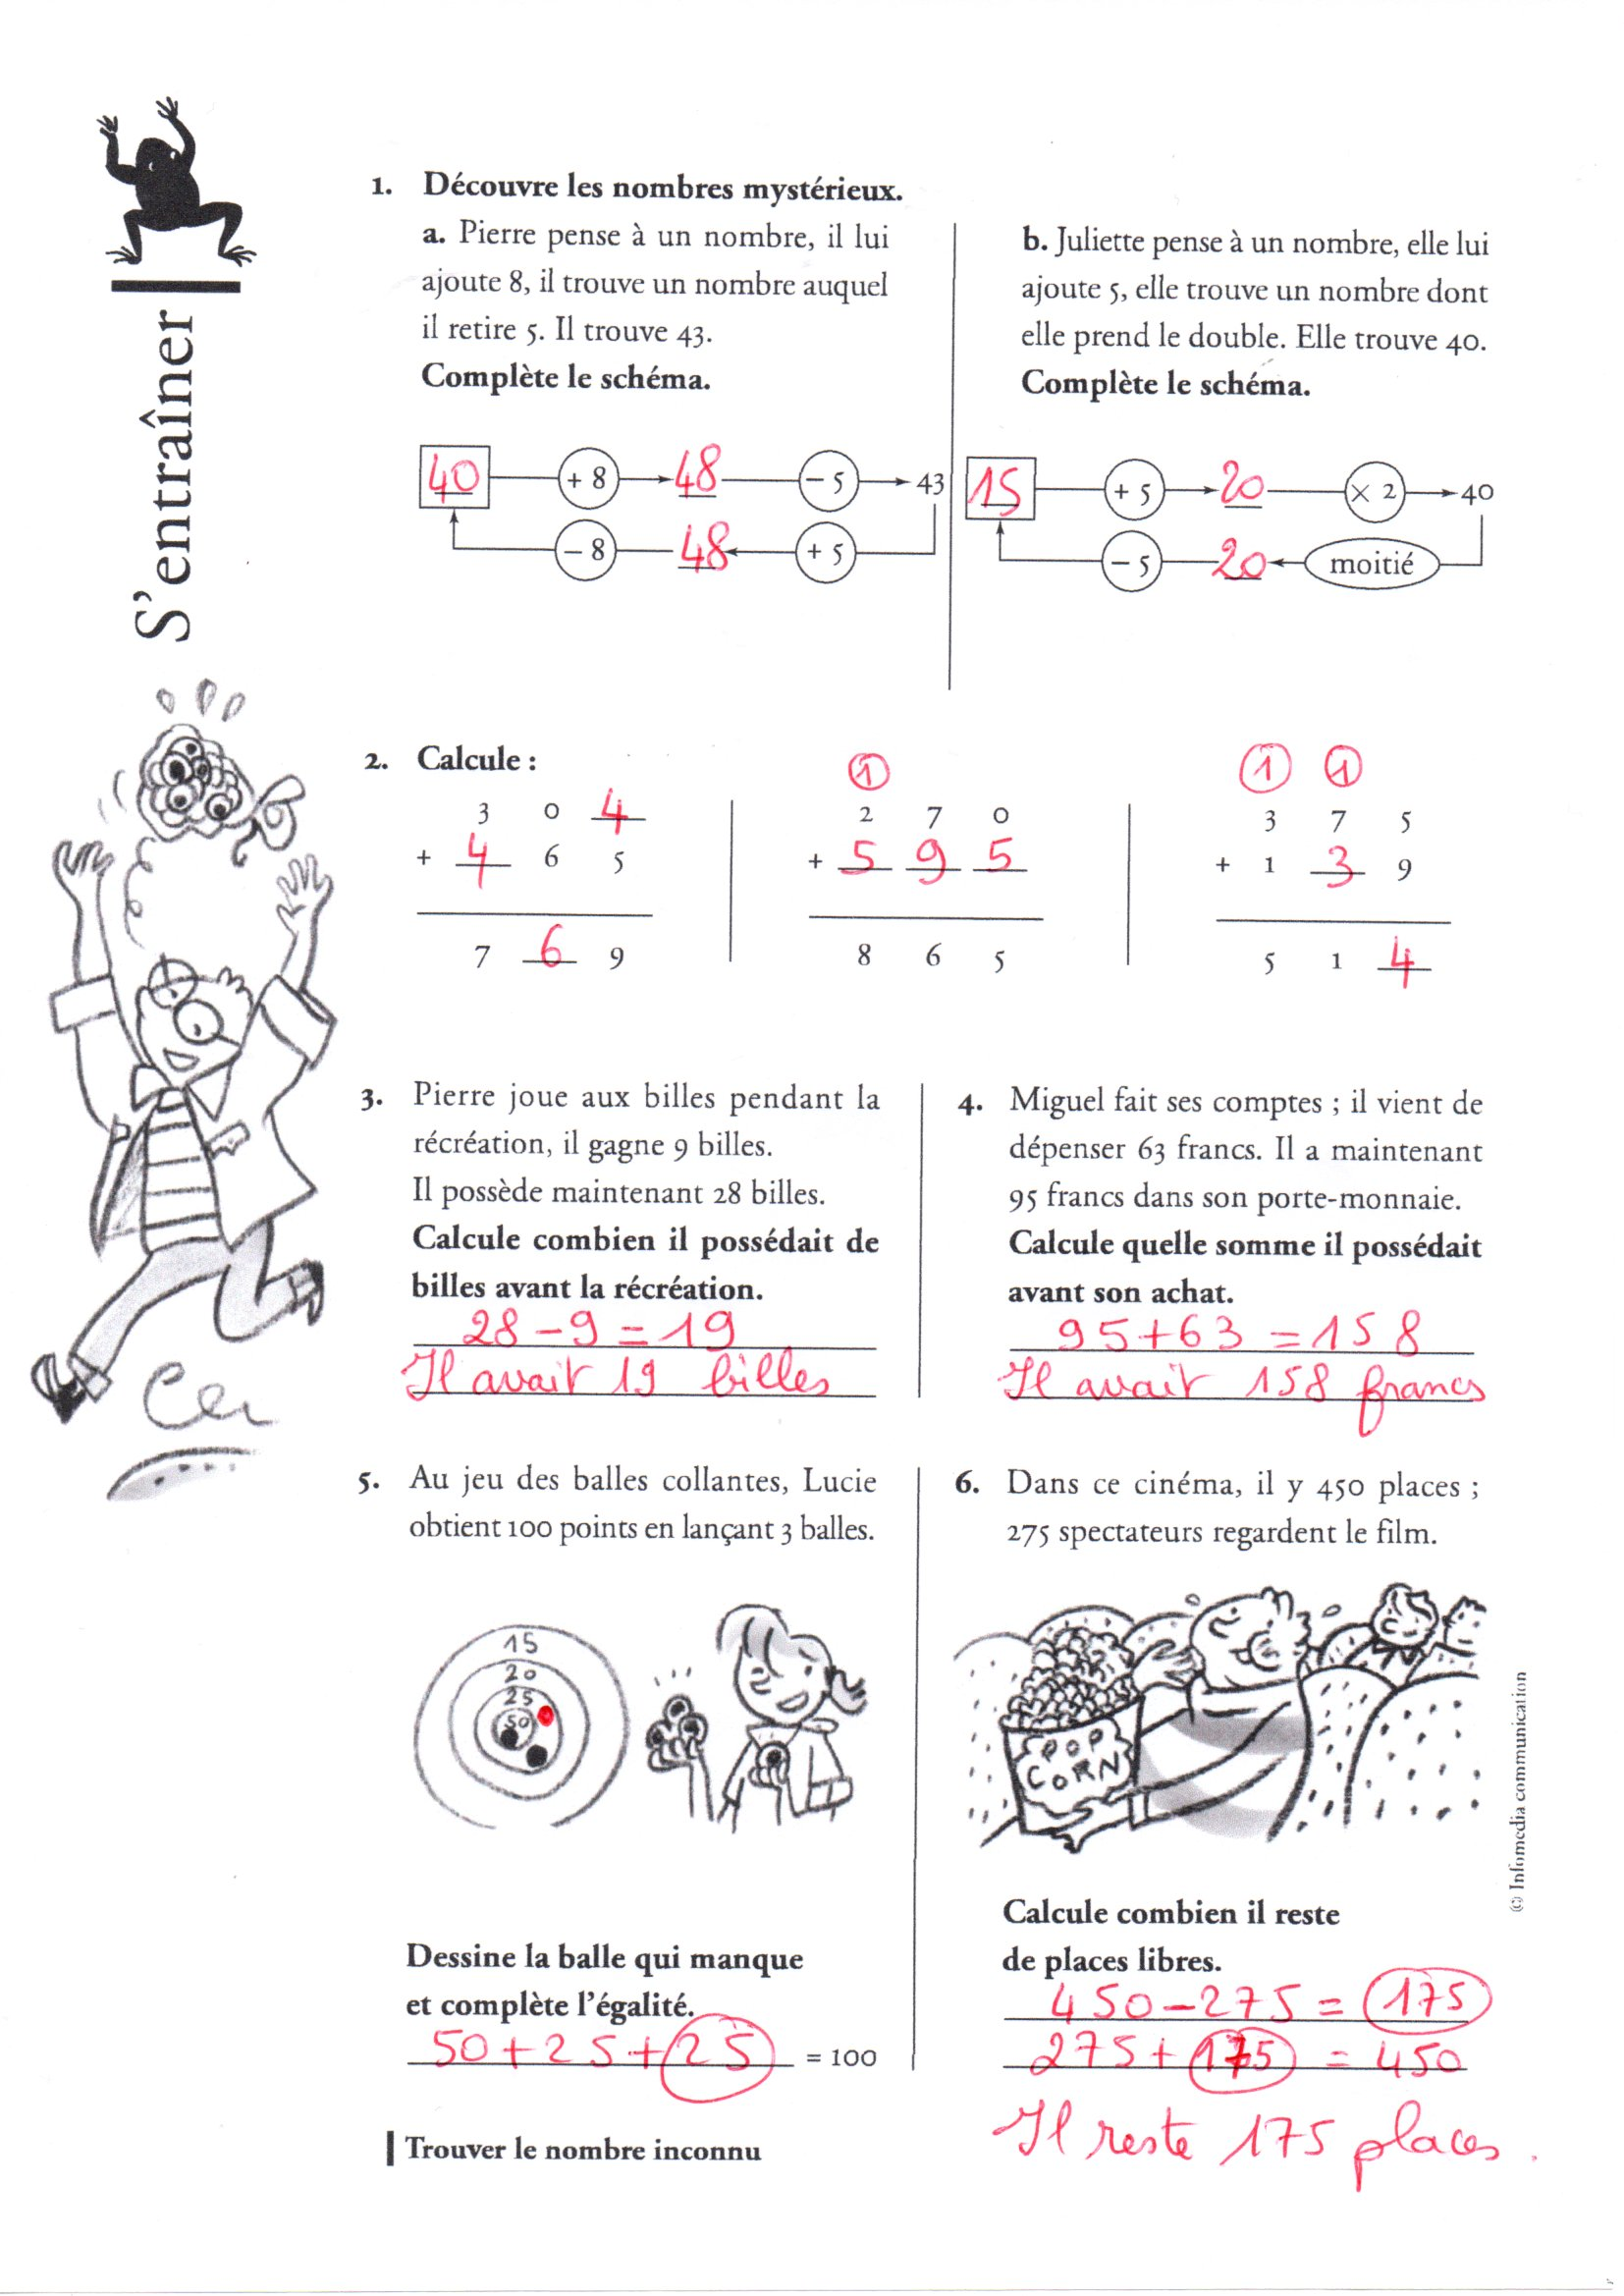 S'entraîner
1. Découvre les nombres mystérieux.
a. Pierre pense à un nombre, il lui
ajoute 8, il trouve un nombre auquel
il retire 5. Il trouve 43.
Complète le schéma.
40 + 8 48 – 5 43
– 8 48 + 5
b. Juliette pense à un nombre, elle lui
ajoute 5, elle trouve un nombre dont
elle prend le double. Elle trouve 40.
Complète le schéma.
15 + 5 20 × 2 40
– 5 20 moitié
2. Calcule :
3 0 4
+ 4 6 5
7 6 9
1
2 7 0
+ 5 9 5
8 6 5
1 1
3 7 5
+ 1 3 9
5 1 4
3. Pierre joue aux billes pendant la
récréation, il gagne 9 billes.
Il possède maintenant 28 billes.
Calcule combien il possédait de
billes avant la récréation.
28 – 9 = 19
Il avait 19 billes
4. Miguel fait ses comptes ; il vient de
dépenser 63 francs. Il a maintenant
95 francs dans son porte-monnaie.
Calcule quelle somme il possédait
avant son achat.
95 + 63 = 158
Il avait 158 francs
5. Au jeu des balles collantes, Lucie
obtient 100 points en lançant 3 balles.
15
20
25
50
Dessine la balle qui manque
et complète l'égalité.
50 + 25 + 25 = 100
6. Dans ce cinéma, il y 450 places ;
275 spectateurs regardent le film.
POP
CORN
Calcule combien il reste
de places libres.
450 – 275 = 175
275 + 175 = 450
Il reste 175 places.
© Infomedia communication
Trouver le nombre inconnu